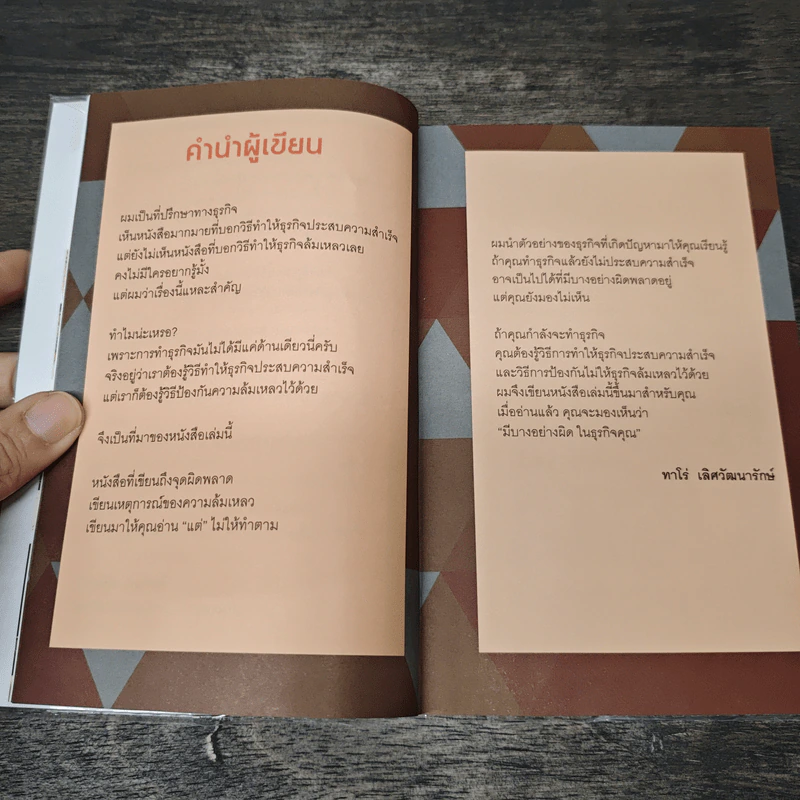 คำนำผู้เขียน
ผมเป็นที่ปรึกษาทางธุรกิจ
เห็นหนังสือมากมายที่บอกวิธีทำให้ธุรกิจประสบความสำเร็จ
แต่ยังไม่เห็นหนังสือที่บอกวิธีทำให้ธุรกิจล้มเหลวเลย
คงไม่มีใครอยากรู้มั้ง
แต่ผมว่าเรื่องนี้แหละสำคัญ
ทำไมน่ะเหรอ?
เพราะการทำธุรกิจมันไม่ได้มีแค่ด้านเดียวนี่ครับ
จริงอยู่ว่าเราต้องรู้วิธีทำให้ธุรกิจประสบความสำเร็จ
แต่เราก็ต้องรู้วิธีป้องกันความล้มเหลวไว้ด้วย
จึงเป็นที่มาของหนังสือเล่มนี้
หนังสือที่เขียนถึงจุดผิดพลาด
เขียนเหตุการณ์ของความล้มเหลว
เขียนมาให้คุณอ่าน "แต่" ไม่ให้ทำตาม
ผมนำตัวอย่างของธุรกิจที่เกิดปัญหามาให้คุณเรียนรู้
ถ้าคุณทำธุรกิจแล้วยังไม่ประสบความสำเร็จ
อาจเป็นไปได้ที่มีบางอย่างผิดพลาดอยู่
แต่คุณยังมองไม่เห็น
ถ้าคุณกำลังจะทำธุรกิจ
คุณต้องรู้วิธีการทำให้ธุรกิจประสบความสำเร็จ
และวิธีการป้องกันไม่ให้ธุรกิจล้มเหลวไว้ด้วย
ผมจึงเขียนหนังสือเล่มนี้ขึ้นมาสำหรับคุณ
เมื่ออ่านแล้ว คุณจะมองเห็นว่า
"มีบางอย่างผิด ในธุรกิจคุณ"
ทาโร่ เลิศวัฒนารักษ์